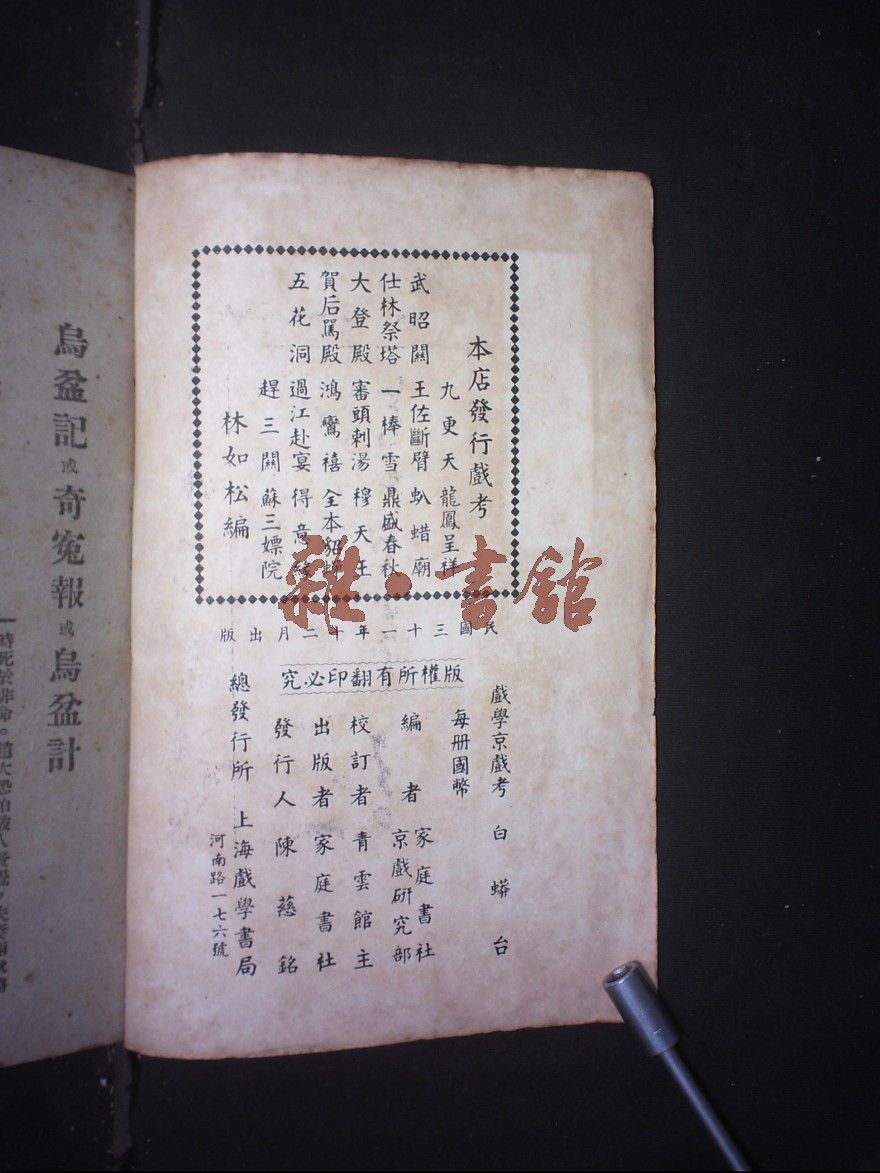 本店發行戲考
九更天 龍鳳呈祥
武昭關 王佐斷臂 虮蜡廟
仕林祭塔 一棒雪 鼎盛春秋
大登殿 審頭刺湯 穆天王
賀后罵殿 鴻鸞禧 全本貂蟬
五花洞 過江赴宴 得意緣
趕三關 蘇三嫖院
林如松編
民國三十一年十二月出版
版權所有翻印必究
戲學京戲考 白蟒台
每册國幣
編者 家庭書社 京戲研究部
校訂者 青雲館主
出版者 家庭書社
發行人 陳慈銘
總發行所 上海戲學書局
河南路一七六號
雜·書館
烏盆記 或 奇寃報 或 烏盆計
時死於非命。趙大恐怕被人發覺,